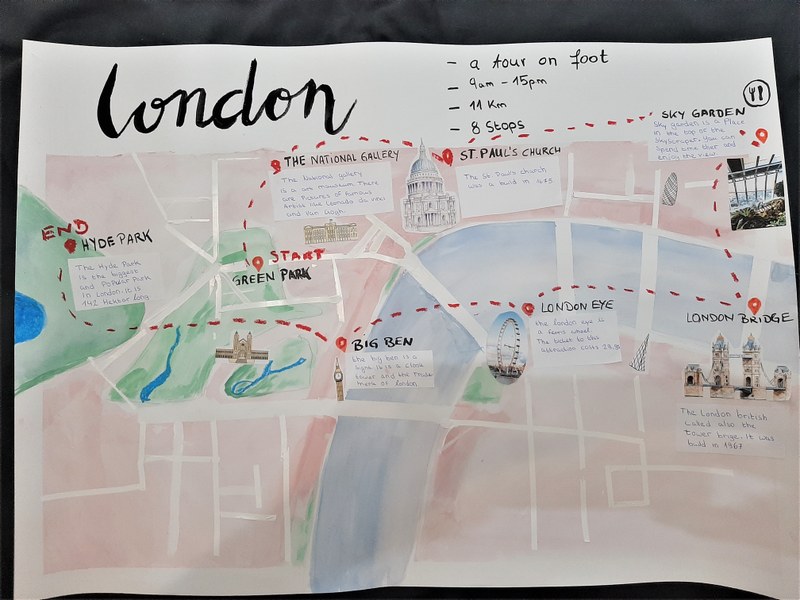 London
- a tour on foot
- 9am - 15pm
- 11 Km
- 8 Stops
SKY GARDEN
Sky garden is a Place
in the top of the
Spend some time and
enjoy the view
THE NATIONAL GALLERY
The National gallery
is a art museum. There
are Pictures of famous
Artists like Leonado da vinci
and Van Gogh.
ST. PAUL'S CHURCH
The St. Paul's church
was a build in
END
HYDE PARK
The Hyde Park
is the biggest
and Popular Park
in London. It is
142 Hektar long
START
GREEN PARK
BIG BEN
the big ben is a
tower and the
of London
LONDON EYE
the london eye is
a ferris wheel.
The ticket to this
attraction costs
LONDON BRIDGE
The London british
called also the
tower brige. It was
build in 1967